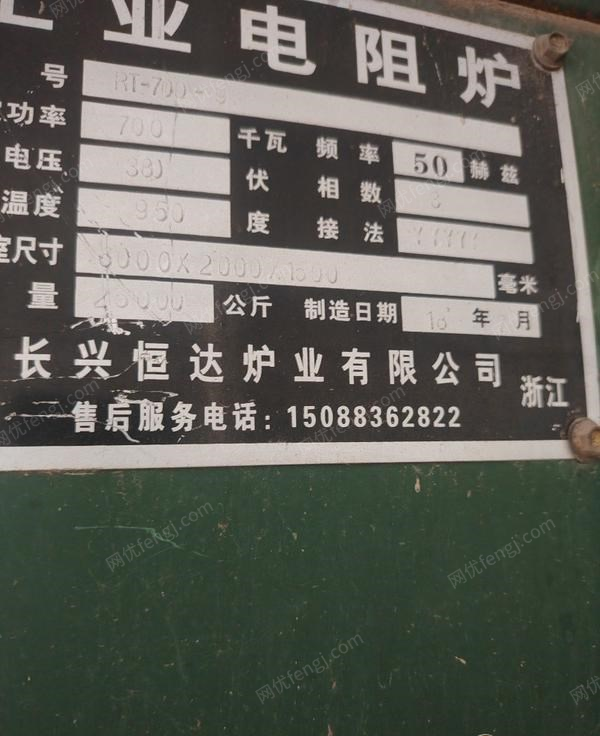 业电阻炉
号 RT-700-9
功率 700 千瓦 频率 50 赫兹
电压 380 伏 相数 3
温度 950 度 接法 YYYYY
室尺寸 6000X2000X1500 毫米
量 公斤 制造日期 18 年 月
长兴恒达炉业有限公司 浙江
售后服务电话：15088362822
网优fengj.com